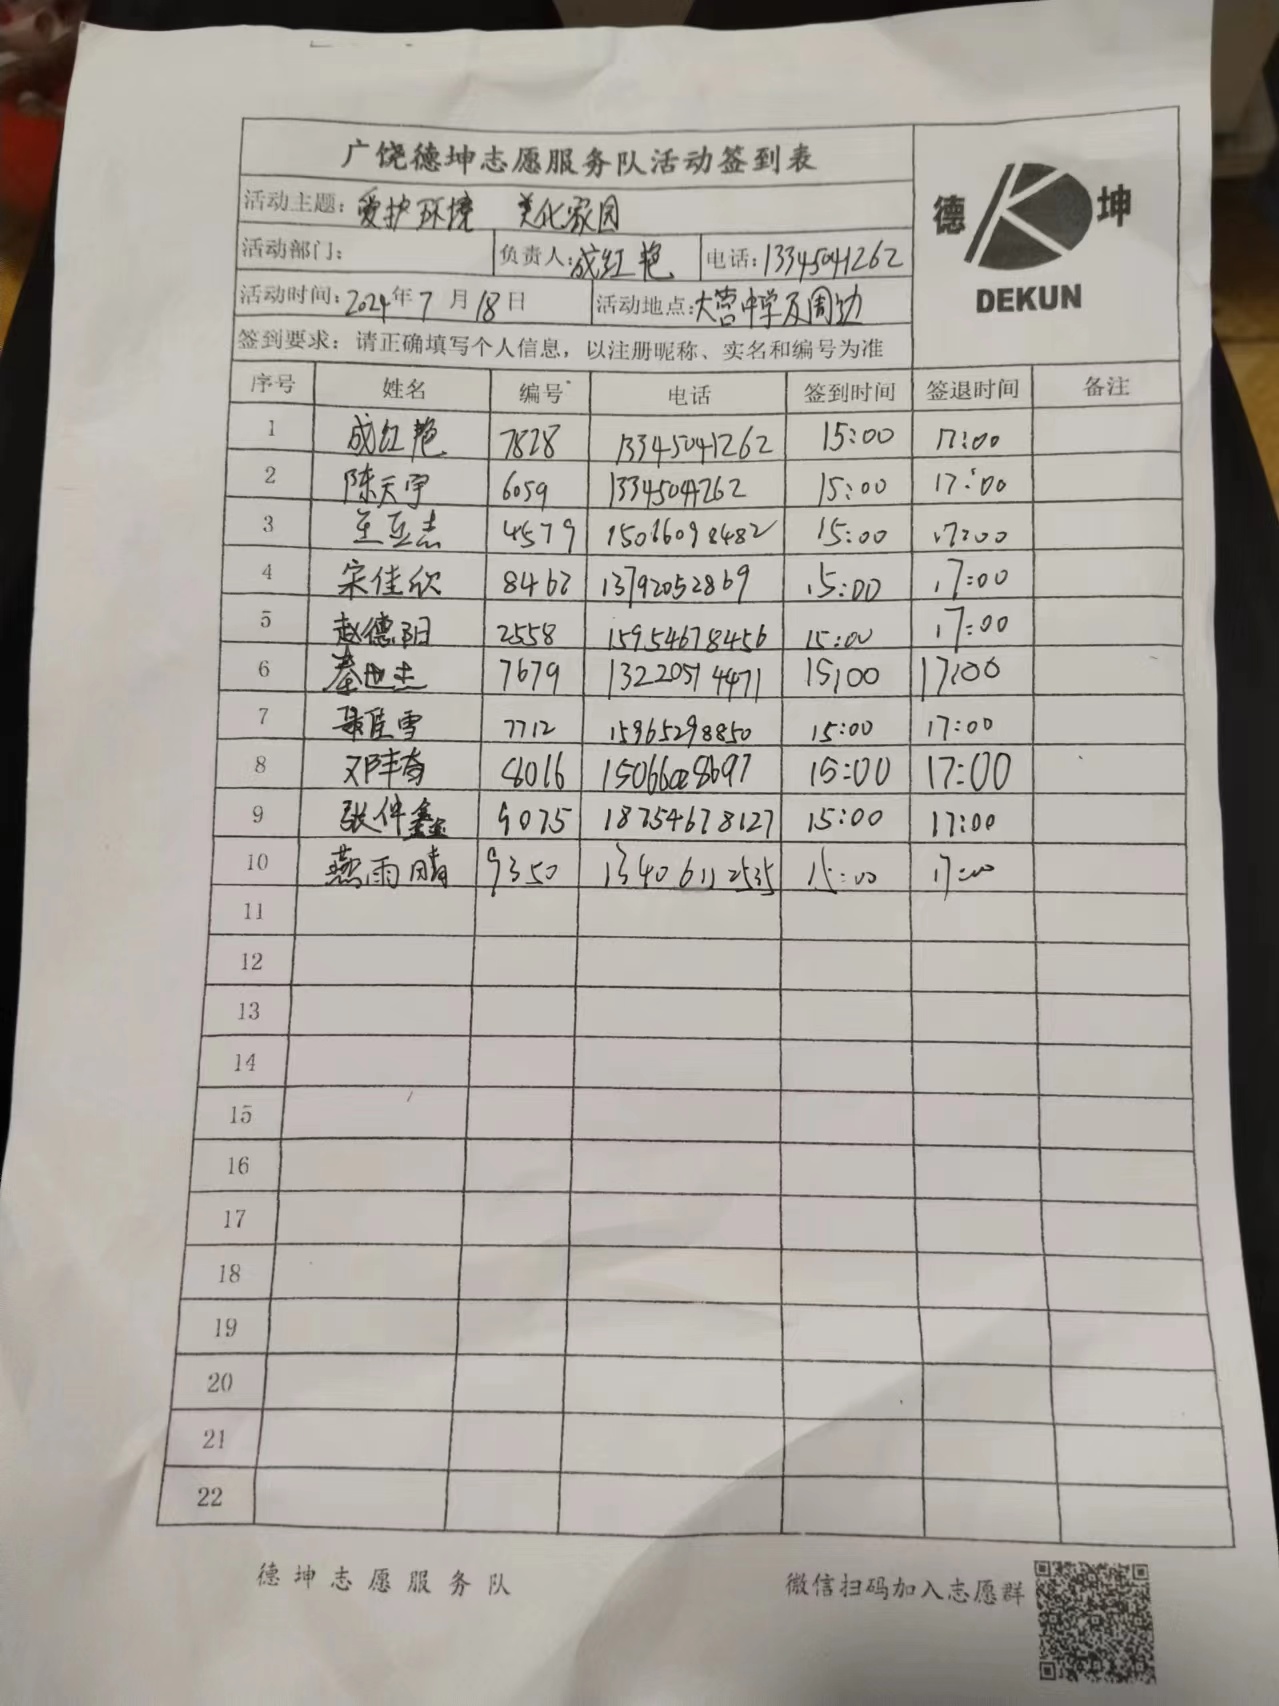 广饶德坤志愿服务队活动签到表
德 坤
DEKUN
活动主题：爱护环境 美化家园
活动部门： 负责人：成红艳 电话：13345041262
活动时间：2024年7月18日 活动地点：大营中学及周边
签到要求：请正确填写个人信息，以注册昵称、实名和编号为准
序号 姓名 编号 电话 签到时间 签退时间 备注
1 成红艳 7828 13345041262 15:00 17:00
2 陈天宇 6059 13345041262 15:00 17:00
3 4579 15066098482 15:00 17:00
4 宋佳欣 8462 13792052869 15:00 17:00
5 赵德阳 2558 15954678456 15:00 17:00
6 秦世杰 7679 13220574471 15:00 17:00
7 聂佳雪 7712 15965298850 15:00 17:00
8 邓丰育 8016 15:00 17:00
9 张仲鑫 9075 18754678127 15:00 17:00
10 燕雨晴 9350 13406112535 15:00 17:00
11
12
13
14
15
16
17
18
19
20
21
22
德坤志愿服务队 微信扫码加入志愿群